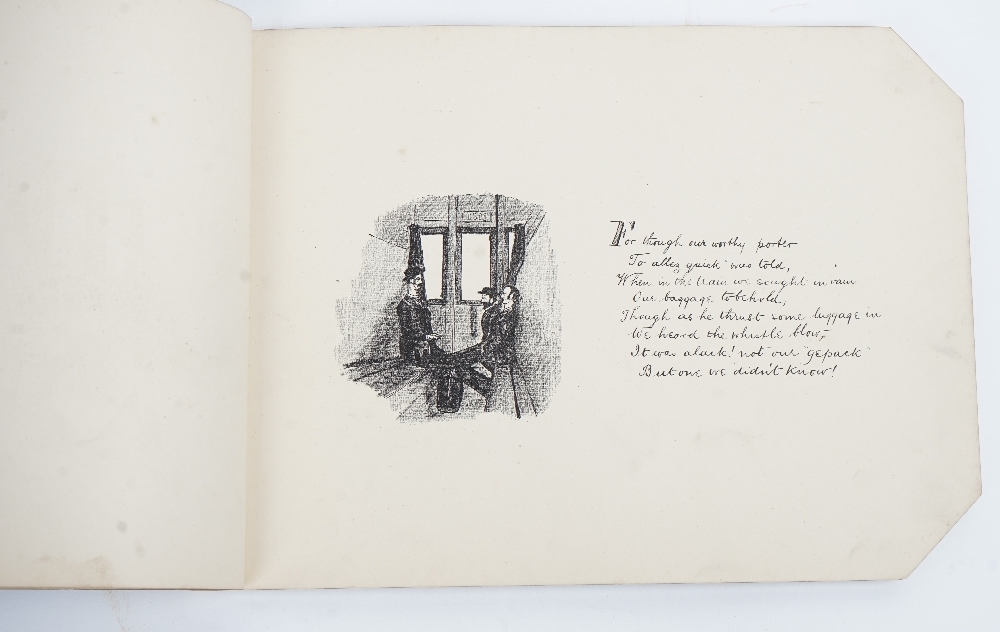 For though our worthy porter
To "allez quick" was told,
When in the train we sought in vain
Our baggage to behold,
Though as he thrust some luggage in
We heard the whistle blow,
It was alack! not our "gepack"
But one we didn't know!